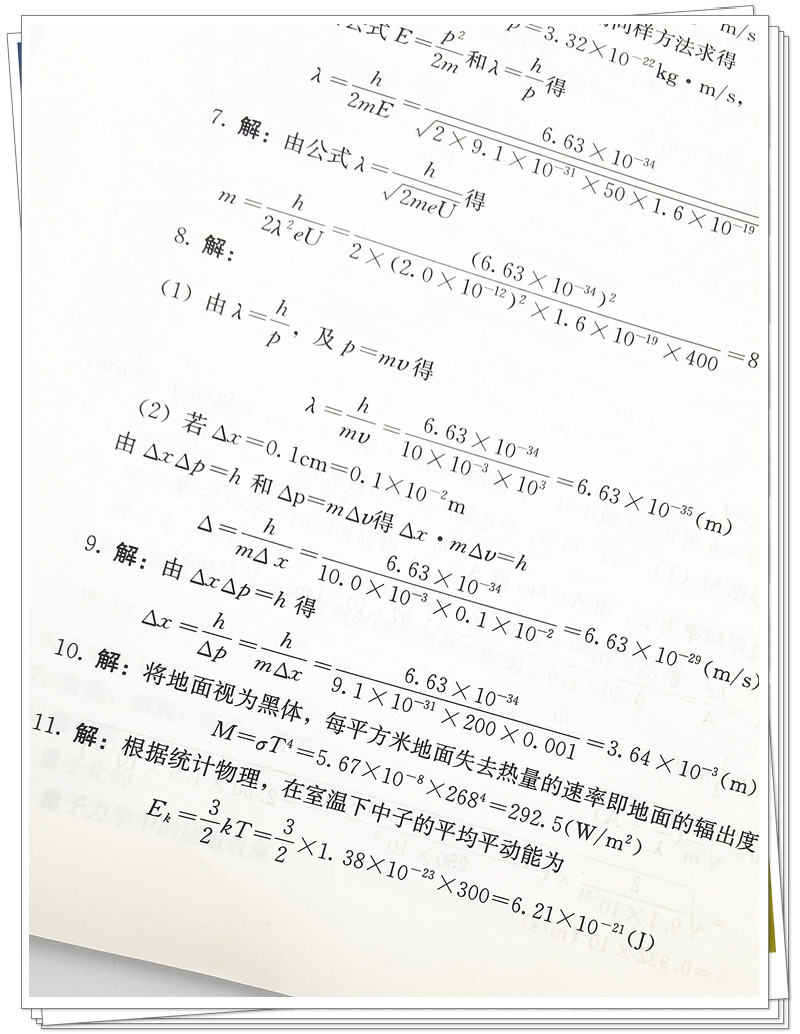 同样方法求得
p=3.32×10⁻²²kg·m/s,
公式 E=p²/2m 和 λ=h/p 得
λ=h/2mE=6.63×10⁻³⁴/√2×9.1×10⁻³¹×50×1.6×10⁻¹⁹
7. 解：由公式 λ=h/√2meU 得
m=h/2λ²eU=(6.63×10⁻³⁴)²/2×(2.0×10⁻¹²)²×1.6×10⁻¹⁹×400=8
8. 解：
（1）由 λ=h/p，及 p=mυ 得
λ=h/mυ=6.63×10⁻³⁴/10×10⁻³×10³=6.63×10⁻³⁵(m)
（2）若 Δx=0.1cm=0.1×10⁻²m
由 ΔxΔp=h 和 Δp=mΔυ得 Δx·mΔυ=h
Δ=h/mΔx=6.63×10⁻³⁴/10.0×10⁻³×0.1×10⁻²=6.63×10⁻²⁹(m/s)
9. 解：由 ΔxΔp=h 得
Δx=h/Δp=h/mΔx=6.63×10⁻³⁴/9.1×10⁻³¹×200×0.001=3.64×10⁻³(m)
10. 解：将地面视为黑体，每平方米地面失去热量的速率即地面的辐出度
M=σT⁴=5.67×10⁻⁸×268⁴=292.5(W/m²)
11. 解：根据统计物理，在室温下中子的平均平动能为
Eₖ=3/2kT=3/2×1.38×10⁻²³×300=6.21×10⁻²¹(J)